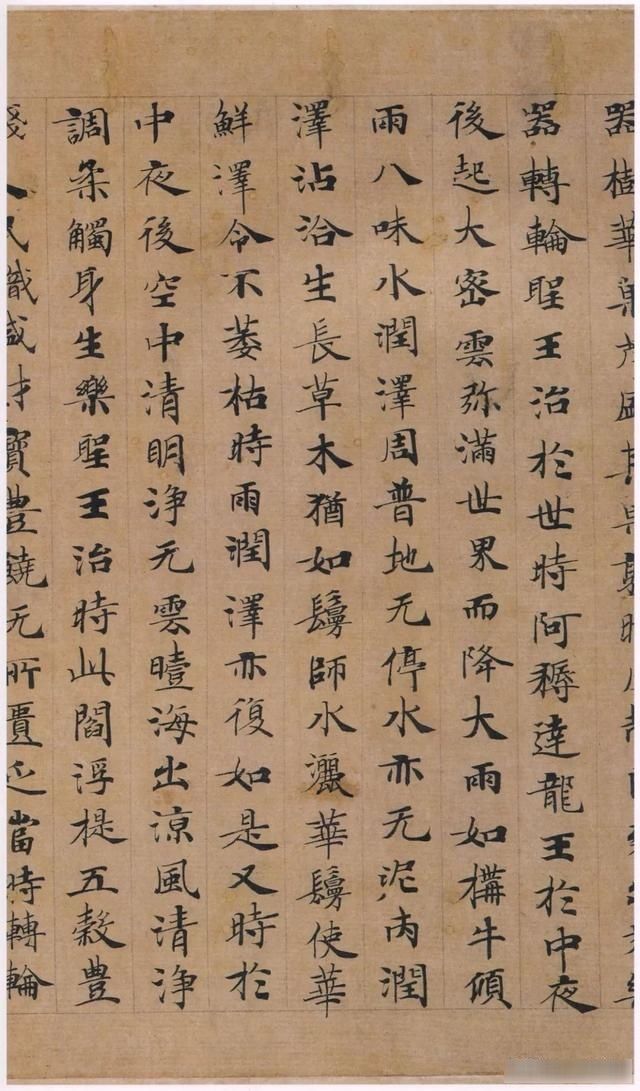 器樹華菓茂盛其菓
器轉輪聖王治於世時阿耨達龍王於中夜
後起大密雲弥滿世界而降大雨如搆牛頃
雨八味水潤澤周普地无停水亦无泥潤
澤沾洽生長草木猶如鬘師水灑華鬘使華
鮮澤令不萎枯時雨潤澤亦復如是又時於
中夜後空中清明淨无雲曀海出涼風清淨
調柔觸身生樂聖王治時此閻浮提五穀豊
賤人民熾盛財寶豊饒无所匱乏當時轉輪